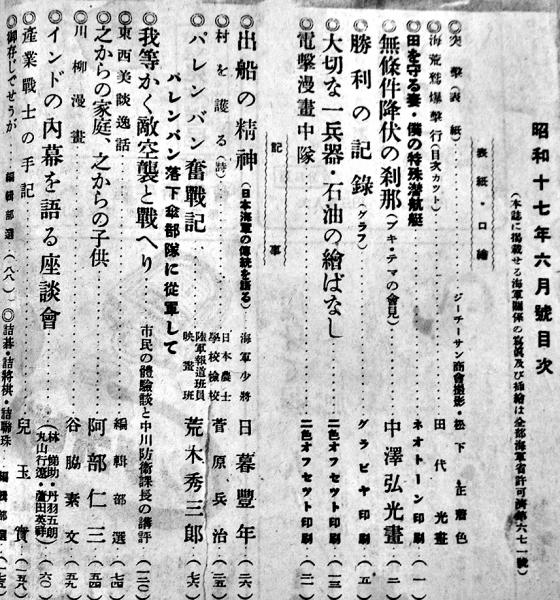 昭和十七年六月號目次
（本誌に掲載せる海軍關係の寫眞及び插繪は全部海軍省許可濟第六七一號）
表紙・口繪
◎突擊（表紙）……ジーチーサン商會撮影・松下正着色
◎海荒鷲爆擊行（目次カット）……田代光畫
◎田を守る妻・僕の特殊潜航艇……ネオトーン印刷（一）
◎無條件降伏の刹那（ブキ・テマの會見）……中澤弘光畫（二）
◎勝利の記錄（グラフ）……グラビヤ印刷（五）
◎大切な一兵器・石油の繪ばなし……二色オフセット印刷（一三）
◎電擊漫畫中隊……二色オフセット印刷（二一）
記事
◎出船の精神（日本海軍の傳統を語る）……海軍少將 日暮豐年（二六）
◎村を護る（詩）……日本農士學校檢校 菅原兵治（三五）
◎パレンバン奮戰記……陸軍報道班員映畫班 荒木秀三郎（七六）
パレンバン落下傘部隊に從軍して
◎我等かく敵空襲と戰へり……市民の體驗談と中川防衛課長の講評（一二〇）
◎東西美談逸話……編輯部選（七四）
◎之からの家庭、之からの子供……阿部仁三（五四）
◎川柳漫畫……谷脇素文（五九）
◎インドの內幕を語る座談會……（林悌助・丹羽五朗 丸山行遼・蘆田英祥）（六〇）
◎產業戰士の手記……兒玉實（一五八）
◎御存じでせうか……編輯部選（八八）
◎詰碁・詰將棋・詰聯珠……編輯部選